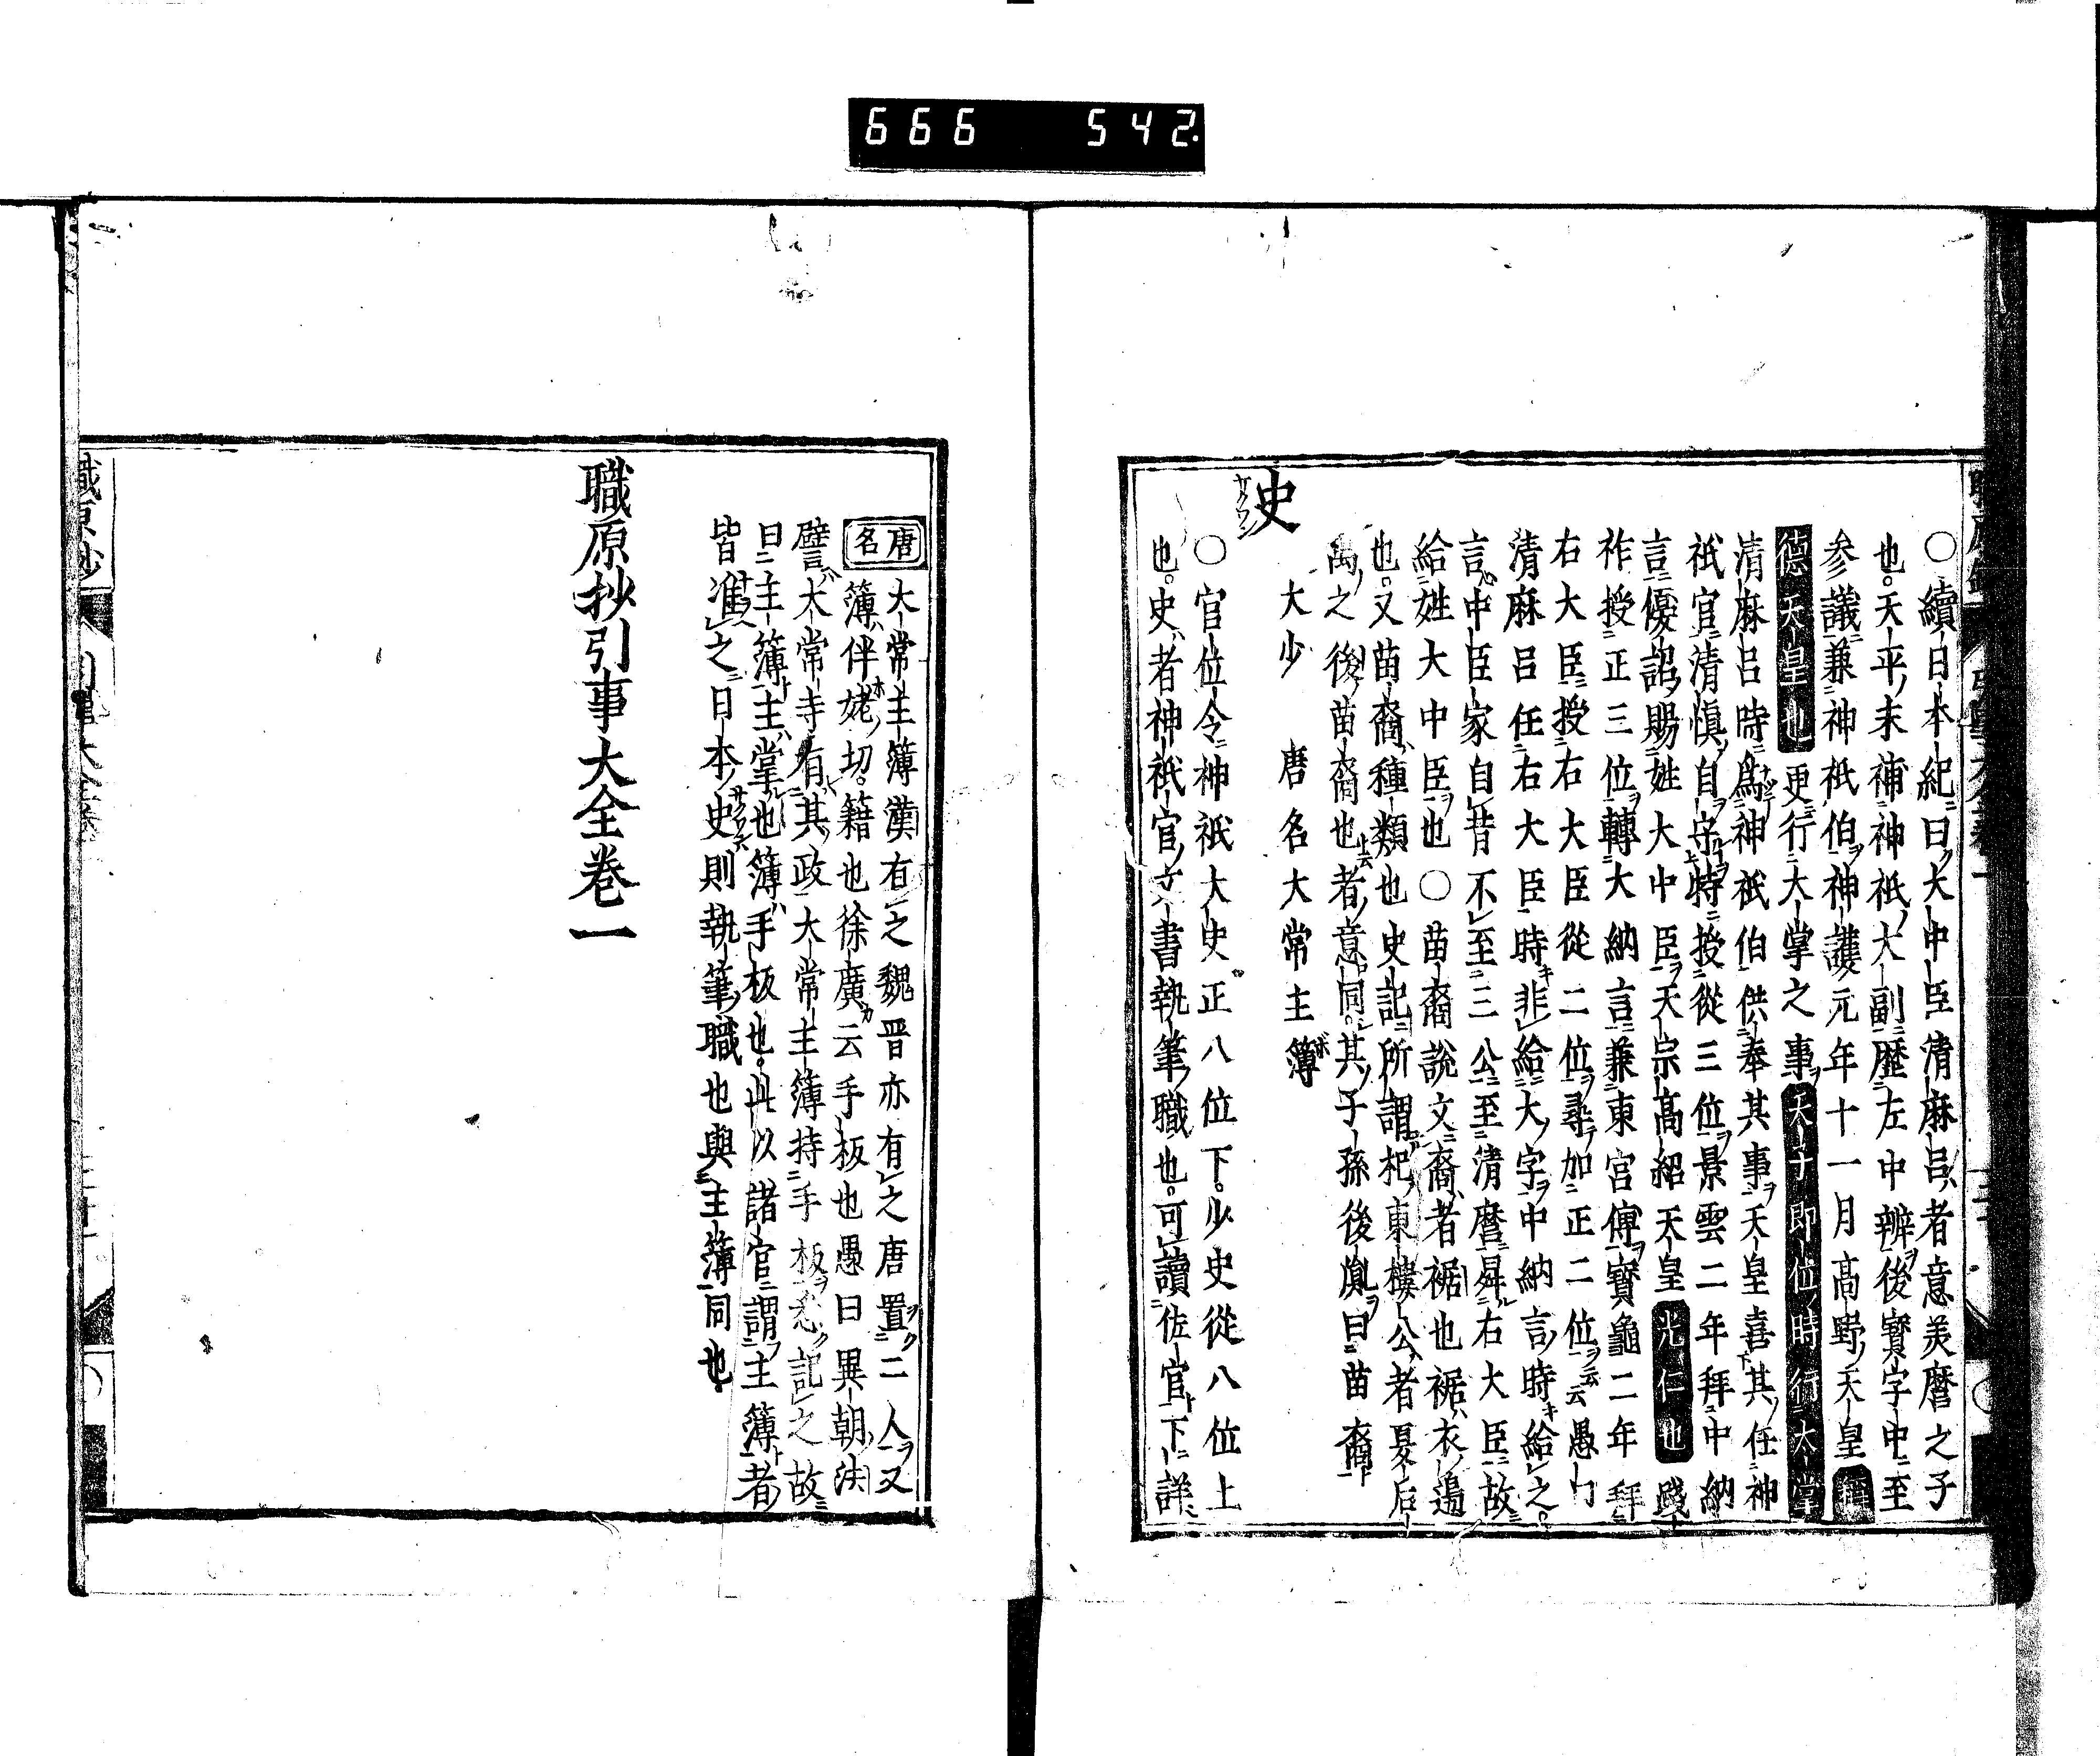 666 542.
○續日本紀曰大中臣清麻呂者意美麿之子
也。天平末補神祇大副歷左中辨後寳字中至
参議兼神祇伯神護元年十一月高野天皇稱
德天皇也更行大掌之事天子即位時行大掌
清麻呂時爲神祇伯供奉其事天皇喜其任神
祇官清愼自守特授從三位景雲二年拜中納
言優詔賜姓大中臣天宗高紹天皇光仁也踐
祚授正三位轉大納言兼東宮傅寳龜二年拜
右大臣授右大臣從二位尋加正二位云云愚曰
清麻呂任右大臣時非給大字中納言時給之。
言中臣家自昔不至三公至清麿昇右大臣故
給姓大中臣也○苗裔說文裔者裾也裾衣邉
也。又苗裔種類也史記所謂杞東樓公者夏后
禹之後苗裔也者意同其子孫後胤曰苗裔
史
サクワン
大少 唐名大常主簿
○官位令神祇大史正八位下。少史從八位上
也。史者神祇官文書執筆職也。可讀佐官下詳
唐名
大常主簿漢有之魏晋亦有之唐置二人又
簿伴姥切。籍也徐廣云手板也愚曰異朝法
譬大常寺有其政大常主簿持手板忩記之故
曰主簿主掌也簿手板也。此以諸官謂主簿者
皆准之日本史則執筆職也與主簿同也
職原抄引事大全卷一